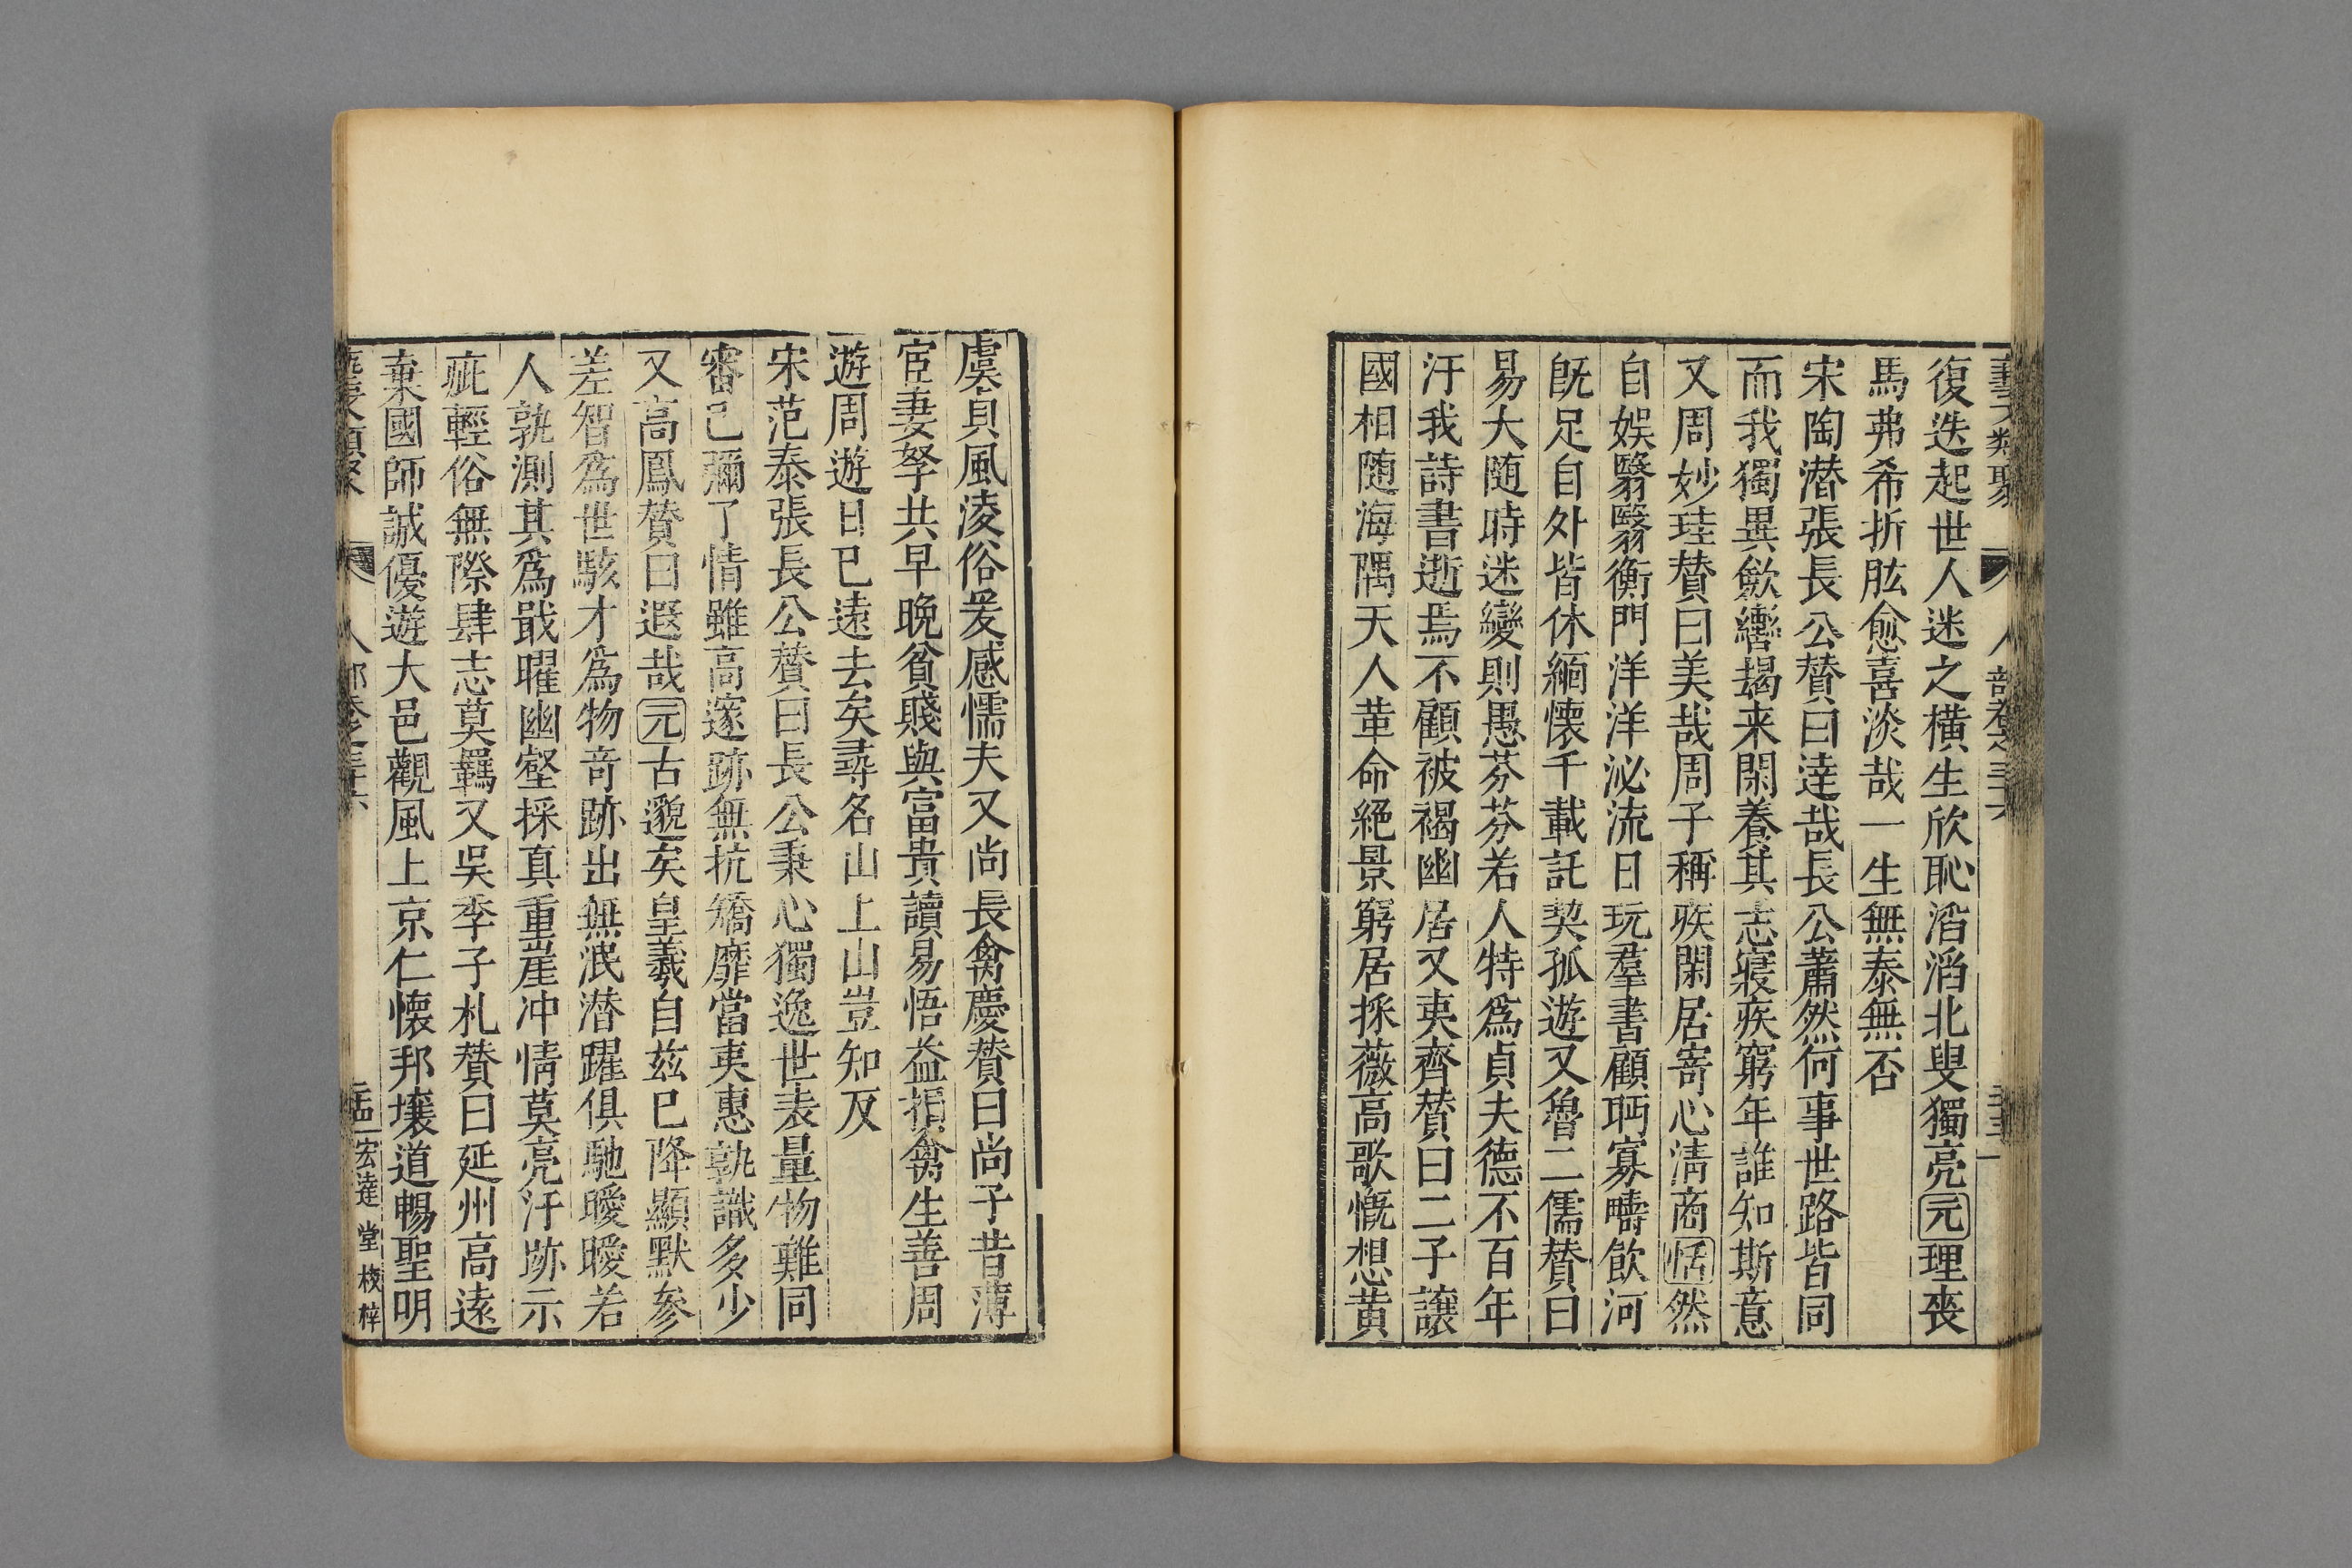 藝文類聚 人部卷之三十六
復迭起世人迷之橫生欣恥滔滔北叟獨亮元理喪
馬弗希折肱愈喜淡哉一生無泰無否
宋陶潜張長公贊曰達哉長公蕭然何事世路皆同
而我獨異歛轡朅来閑養其志寢疾窮年誰知斯意
又周妙珪贊曰美哉周子稱疾閑居寄心淸商恬然
自娱翳翳衡門洋洋泌流日玩羣書顧眄寡疇飲河
旣足自外皆休緬懷千載託契孤遊又魯二儒贊曰
易大随時迷變則愚芬芬若人特爲貞夫德不百年
汙我詩書逝焉不顧被褐幽居又夷齊贊曰二子讓
國相随海隅天人革命絕景窮居採薇高歌慨想黄
虞貞風淩俗爰感懦夫又尚長禽慶贊曰尚子昔薄
宦妻孥共早晚貧賤與富貴讀易悟益損禽生善周
遊周遊日已遠去矣尋名山上山豈知反
宋范泰張長公贊曰長公秉心獨逸世表量物難同
審己彌了情雖高邃跡無抗矯靡當夷惠孰識多少
又高鳳贊曰遐哉元古邈矣皇羲自玆已降顯默參
差智爲世駭才爲物竒跡出無泯潜躍俱馳曖曖若
人孰測其爲戢曜幽壑採真重崖冲情莫亮汙跡示
疵輕俗無際肆志莫羈又吳季子札贊曰延州高遠
棄國師誠優遊大邑觀風上京仁懷邦壤道暢聖明
宏達堂校梓